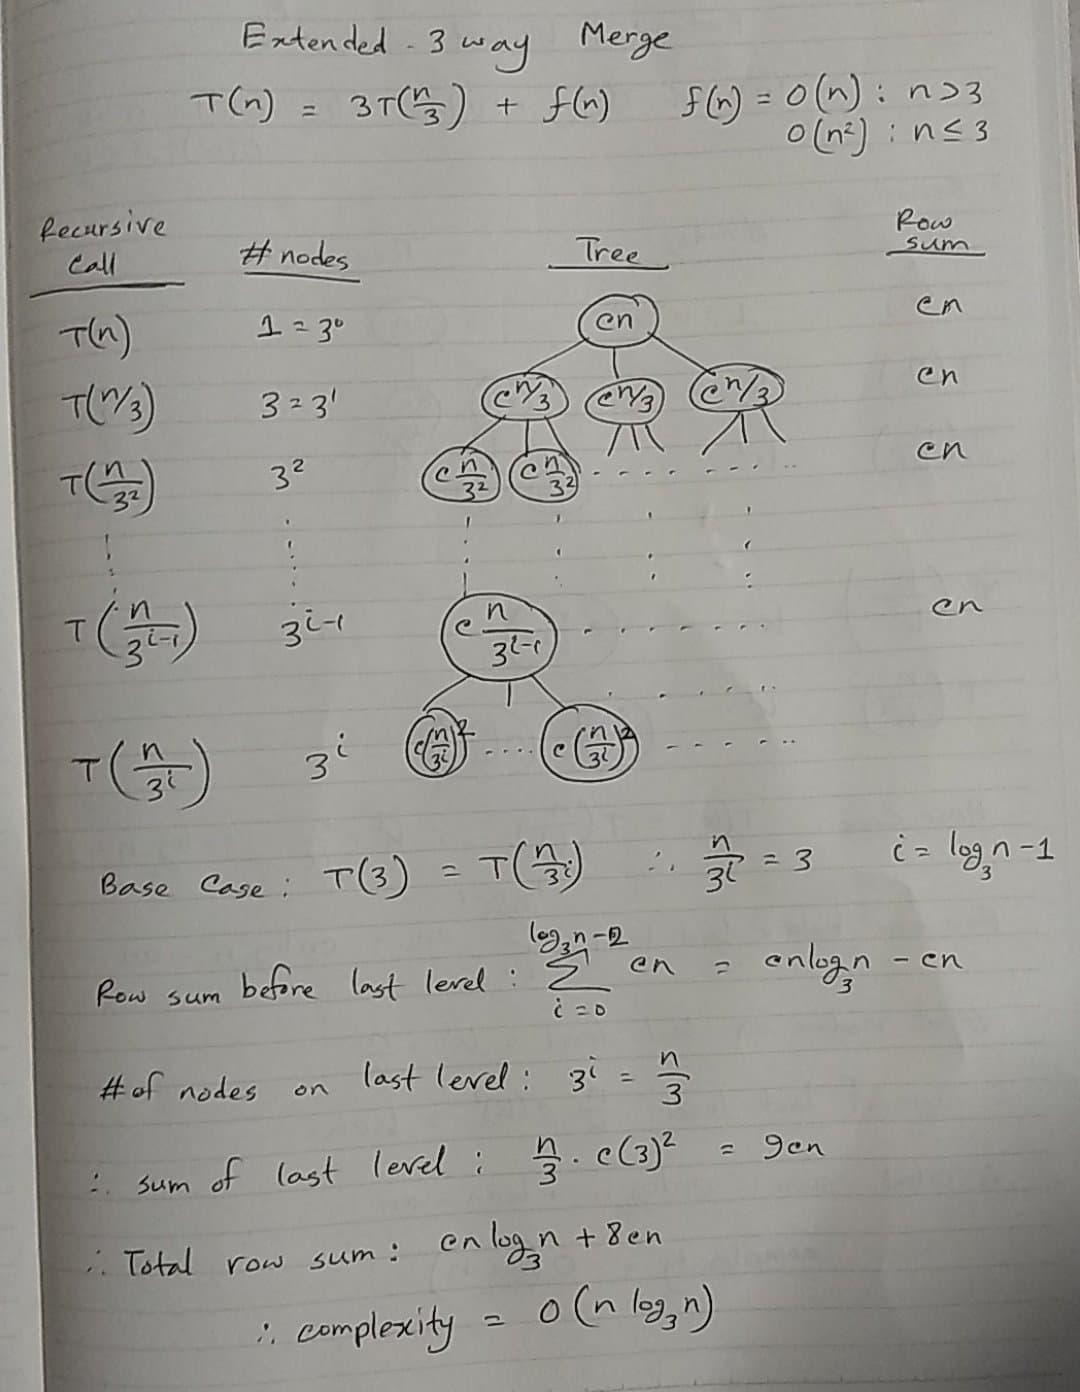 Extended - 3 way Merge
T(n) = 3T(n/3) + f(n) f(n) = O(n) : n>3
O(n²) : n≤3
Recursive Call # nodes Tree Row sum
T(n) 1 = 3⁰ cn cn
T(n/3) 3 = 3¹ cn/3 cn/3 cn/3 cn
T(n/3²) 3² c n/3² c n/3² ........ cn
T(n/3^(i-1)) 3^(i-1) c n/3^(i-1) ........ cn
T(n/3^i) 3^i c(n/3^i)² .... c(n/3^i)² ......
Base Case : T(3) = T(n/3^i) ∴ n/3^i = 3 i = log₃n - 1
Row sum before last level : Σ_{i=0}^{log₃n-2} cn = cnlog₃n - cn
# of nodes on last level : 3^i = n/3
∴ sum of last level : n/3 · c(3)² = 9cn
∴ Total row sum : cn log₃n + 8cn
∴ complexity = O(n log₃n)